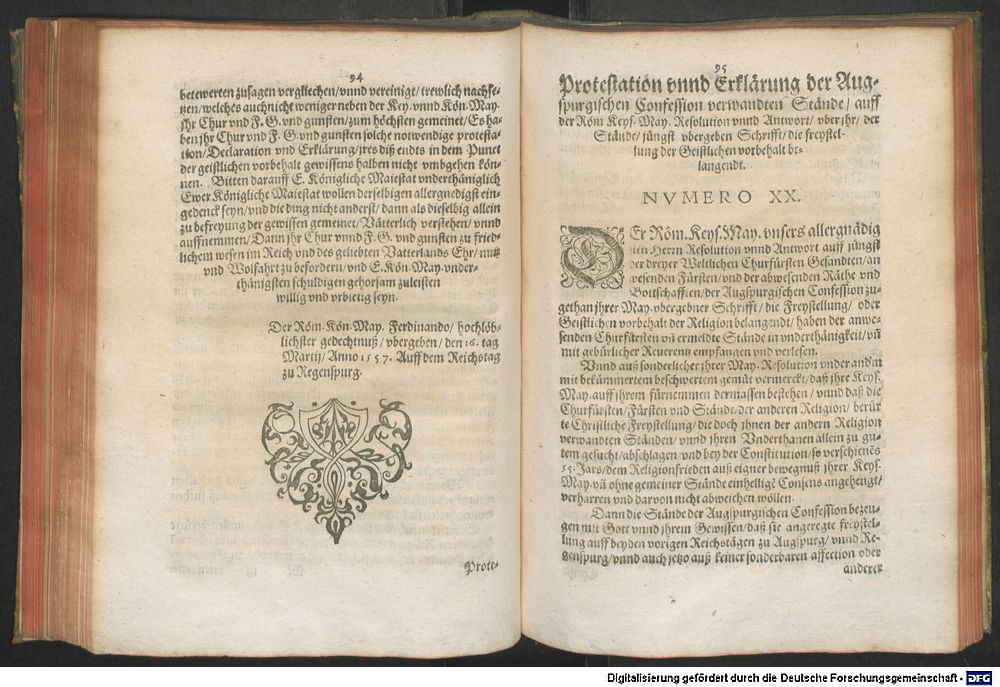 94
betewerten zusagen vergliechen/vnnd vereinigt/trewlich nachse-
tzen/welches auch nicht weniger neben der Key. vnnd Kön. May.
jhr Chur vnd F. G. vnd gunsten/zum höchsten gemeinet/Es ha-
ben jhr Chur vnd F. G. vnd gunsten solche notwendige protesta-
tion/Declaration vnd Erklärung/jres diß endts in dem Punct
der geistlichen vorbehalt gewissens halben nicht vmbgehen kön-
nen. Bitten darauff E. Königliche Maiestat vnderthäniglich
Ewer Königliche Maiestat wollen derselbigen allergnedigst ein-
gedenck seyn/vnd die ding nicht anderst/dann als dieselbig allein
zu befreyung der gewissen gemeinet/Vätterlich verstehen/vnnd
auffnemmen/Dann jhr Chur vnnd F. G. vnd gunsten zu fried-
lichem wesen im Reich vnd des geliebten Vatterlands Ehr/nutz
vnd Wolfahrt zu befordern/vnd E. Kön. May. vnder-
thänigsten schuldigen gehorsam zuleisten
willig vnd vrbietig seyn.
Der Röm. Kön. May. Ferdinando/hochlöb-
lichster gedechtnuß/vbergeben/den 16. tag
Martij/Anno 1557. Auff dem Reichstag
zu Regenspurg.
Prote-
95
Protestation vnnd Erklärung der Aug-
spurgischen Confession verwandten Stände/auff
der Röm Keys. May. Resolution vnnd Antwort/vber jhr/der
Stände/jüngst vbergeben Schrifft/die freystel-
lung der Geistlichen vorbehalt be-
langendt.
NVMERO XX.
DEr Röm. Keys. May. vnsers allergnädig
sten Herrn Resolution vnnd Antwort auff jüngst
der dreyer Weltlichen Churfürsten Gesandten/an
wesenden Fürsten/vnd der abwesenden Räthe vnd
Bottschafften/der Augspurgischen Confession zu-
gethan jhrer May. vbergebner Schrifft/die Freystellung/oder
Geistlichen vorbehalt der Religion belangendt/haben der anwe-
senden Churfürsten vñ ermeldte Stände in vnderthänigkeit/vñ
mit gebürlicher Reuerentz empfangen vnd verlesen.
Vnnd auß sonderlicher jhrer May. Resolution vnder andern
mit bekümmertem beschwertem gemüt vermerckt/daß jhre Keys.
May. auff jhrem fürnemmen dermassen bestehen/vnnd daß die
Churfürsten/Fürsten vnd Stände/der anderen Religion/berür
te Christliche Freystellung/die doch jhnen der andern Religion
verwandten Ständen/vnnd jhren Vnderthanen allein zu gu-
tem gesucht/abschlagen vnd bey der Constitution/so verschienēs
55. Jars/dem Religionfrieden auß eigner bewegnuß jhrer Keys.
May. vñ ohne gemeiner Stände einhellige Consens angehengt/
verharren vnd darvon nicht abweichen wöllen.
Dann die Stände der Augspurgischen Confession bezeu-
gen mit Gott vnnd jhrem Gewissen/daß sie angeregte freystel-
lung auff beyden vorigen Reichstägen zu Augspurg/vnnd Re-
genspurg/vnnd auch jetzo auß keiner sonderbaren affection oder
anderer
Digitalisierung gefördert durch die Deutsche Forschungsgemeinschaft - DFG